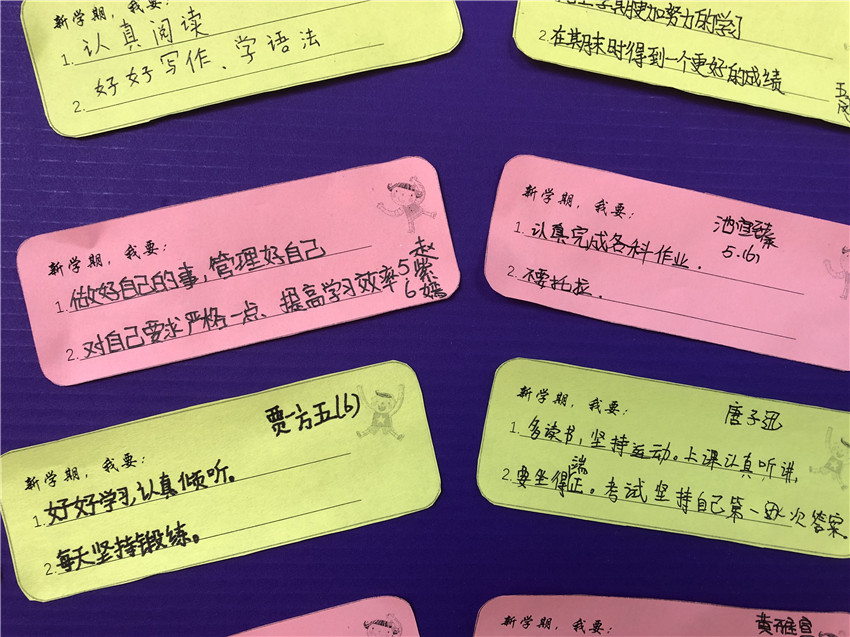 新学期，我要：
1. 认真阅读
2. 好好写作、学语法
努力的学习
2. 在期末时得到一个更好的成绩
新学期，我要：
1. 做好自己的事，管理好自己
2. 对自己要求严格一点、提高学习效率
赵紫嫣
5
6
新学期，我要：
池
5.(6)
1. 认真完成各科作业．
2. 不要拖拉．
新学期，我要：
贾一方五(6)
1. 好好学习，认真倾听。
2. 每天坚持锻练。
新学期，我要：
唐子
1. 多读书，坚持运动。上课认真听讲，
2. 要坐得端正。考试坚持自己第一次答案
新学期，我要：
黄